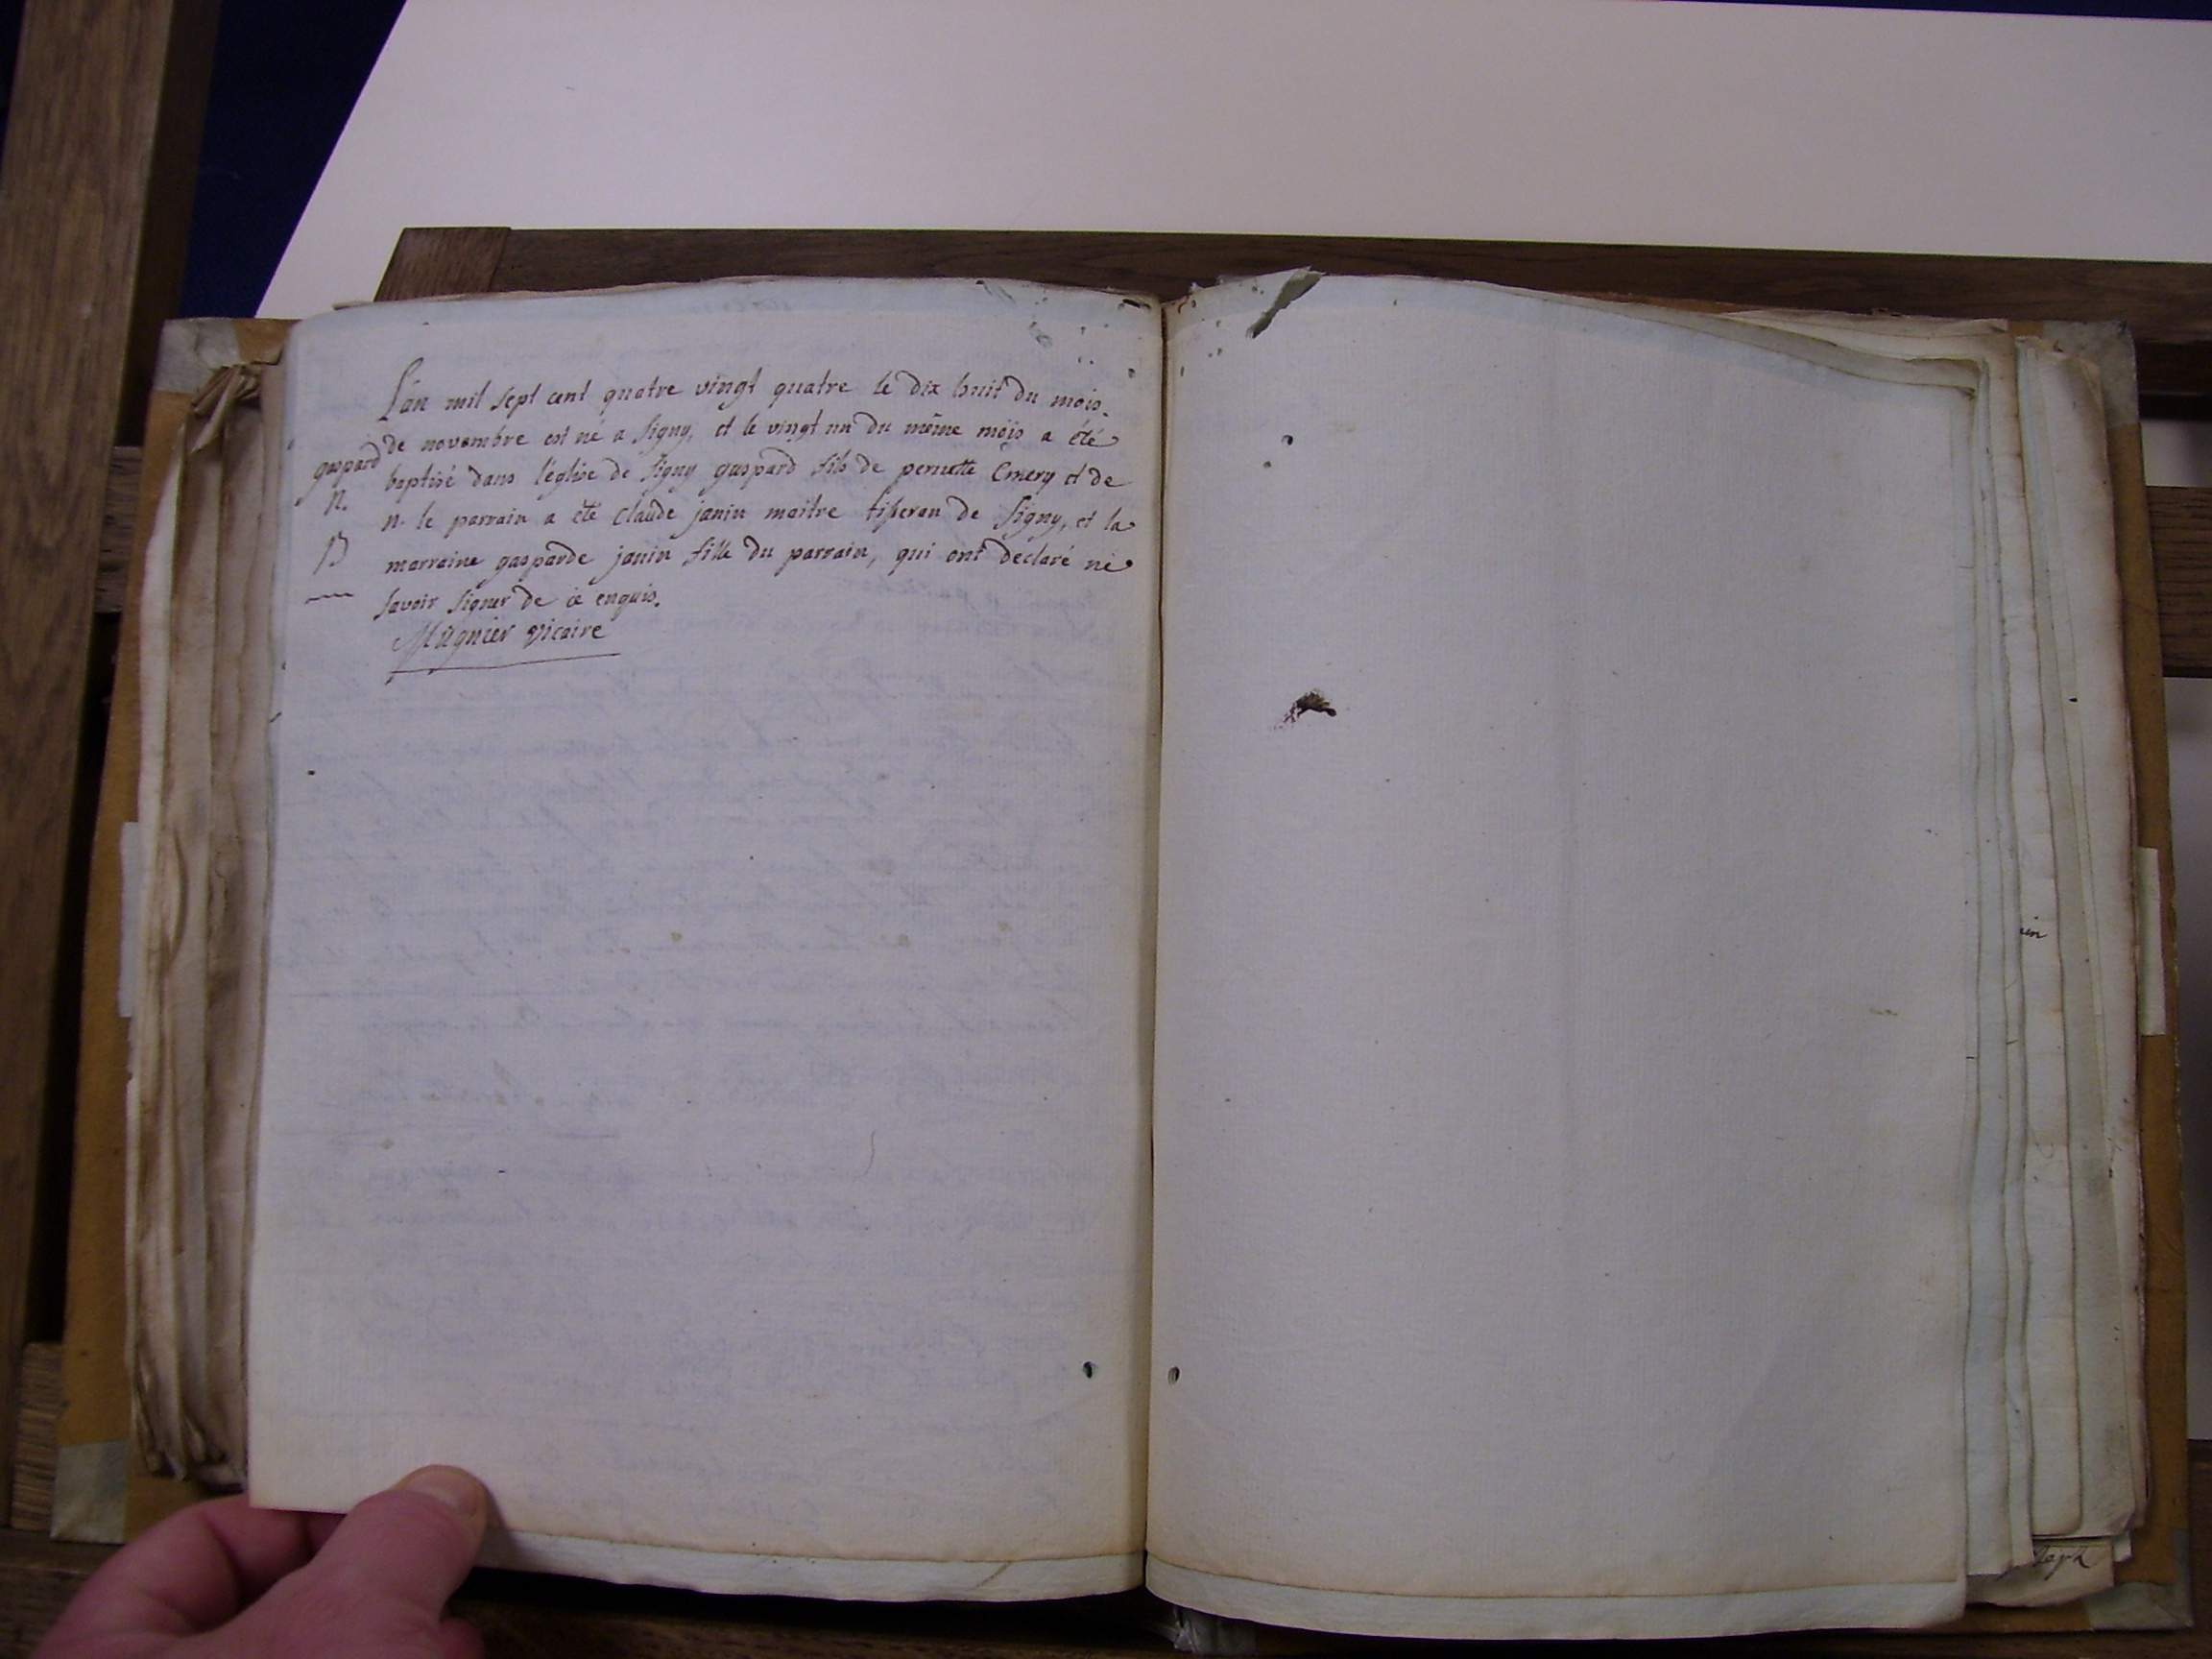 L'an mil sept cent quatre vingt quatre le dix huit du mois.
de novembre est né a signy, et le vingt un du même mois a été
gaspard baptisé dans l'église de signy gaspard fils de pernette Emery et de
N. n. le parrain a été claude janin maitre tisseran de signy, et la
B marraine gasparde janin fille du parrain, qui ont declaré ne
savoir signer de ce enquis.
Mugnier vicaire